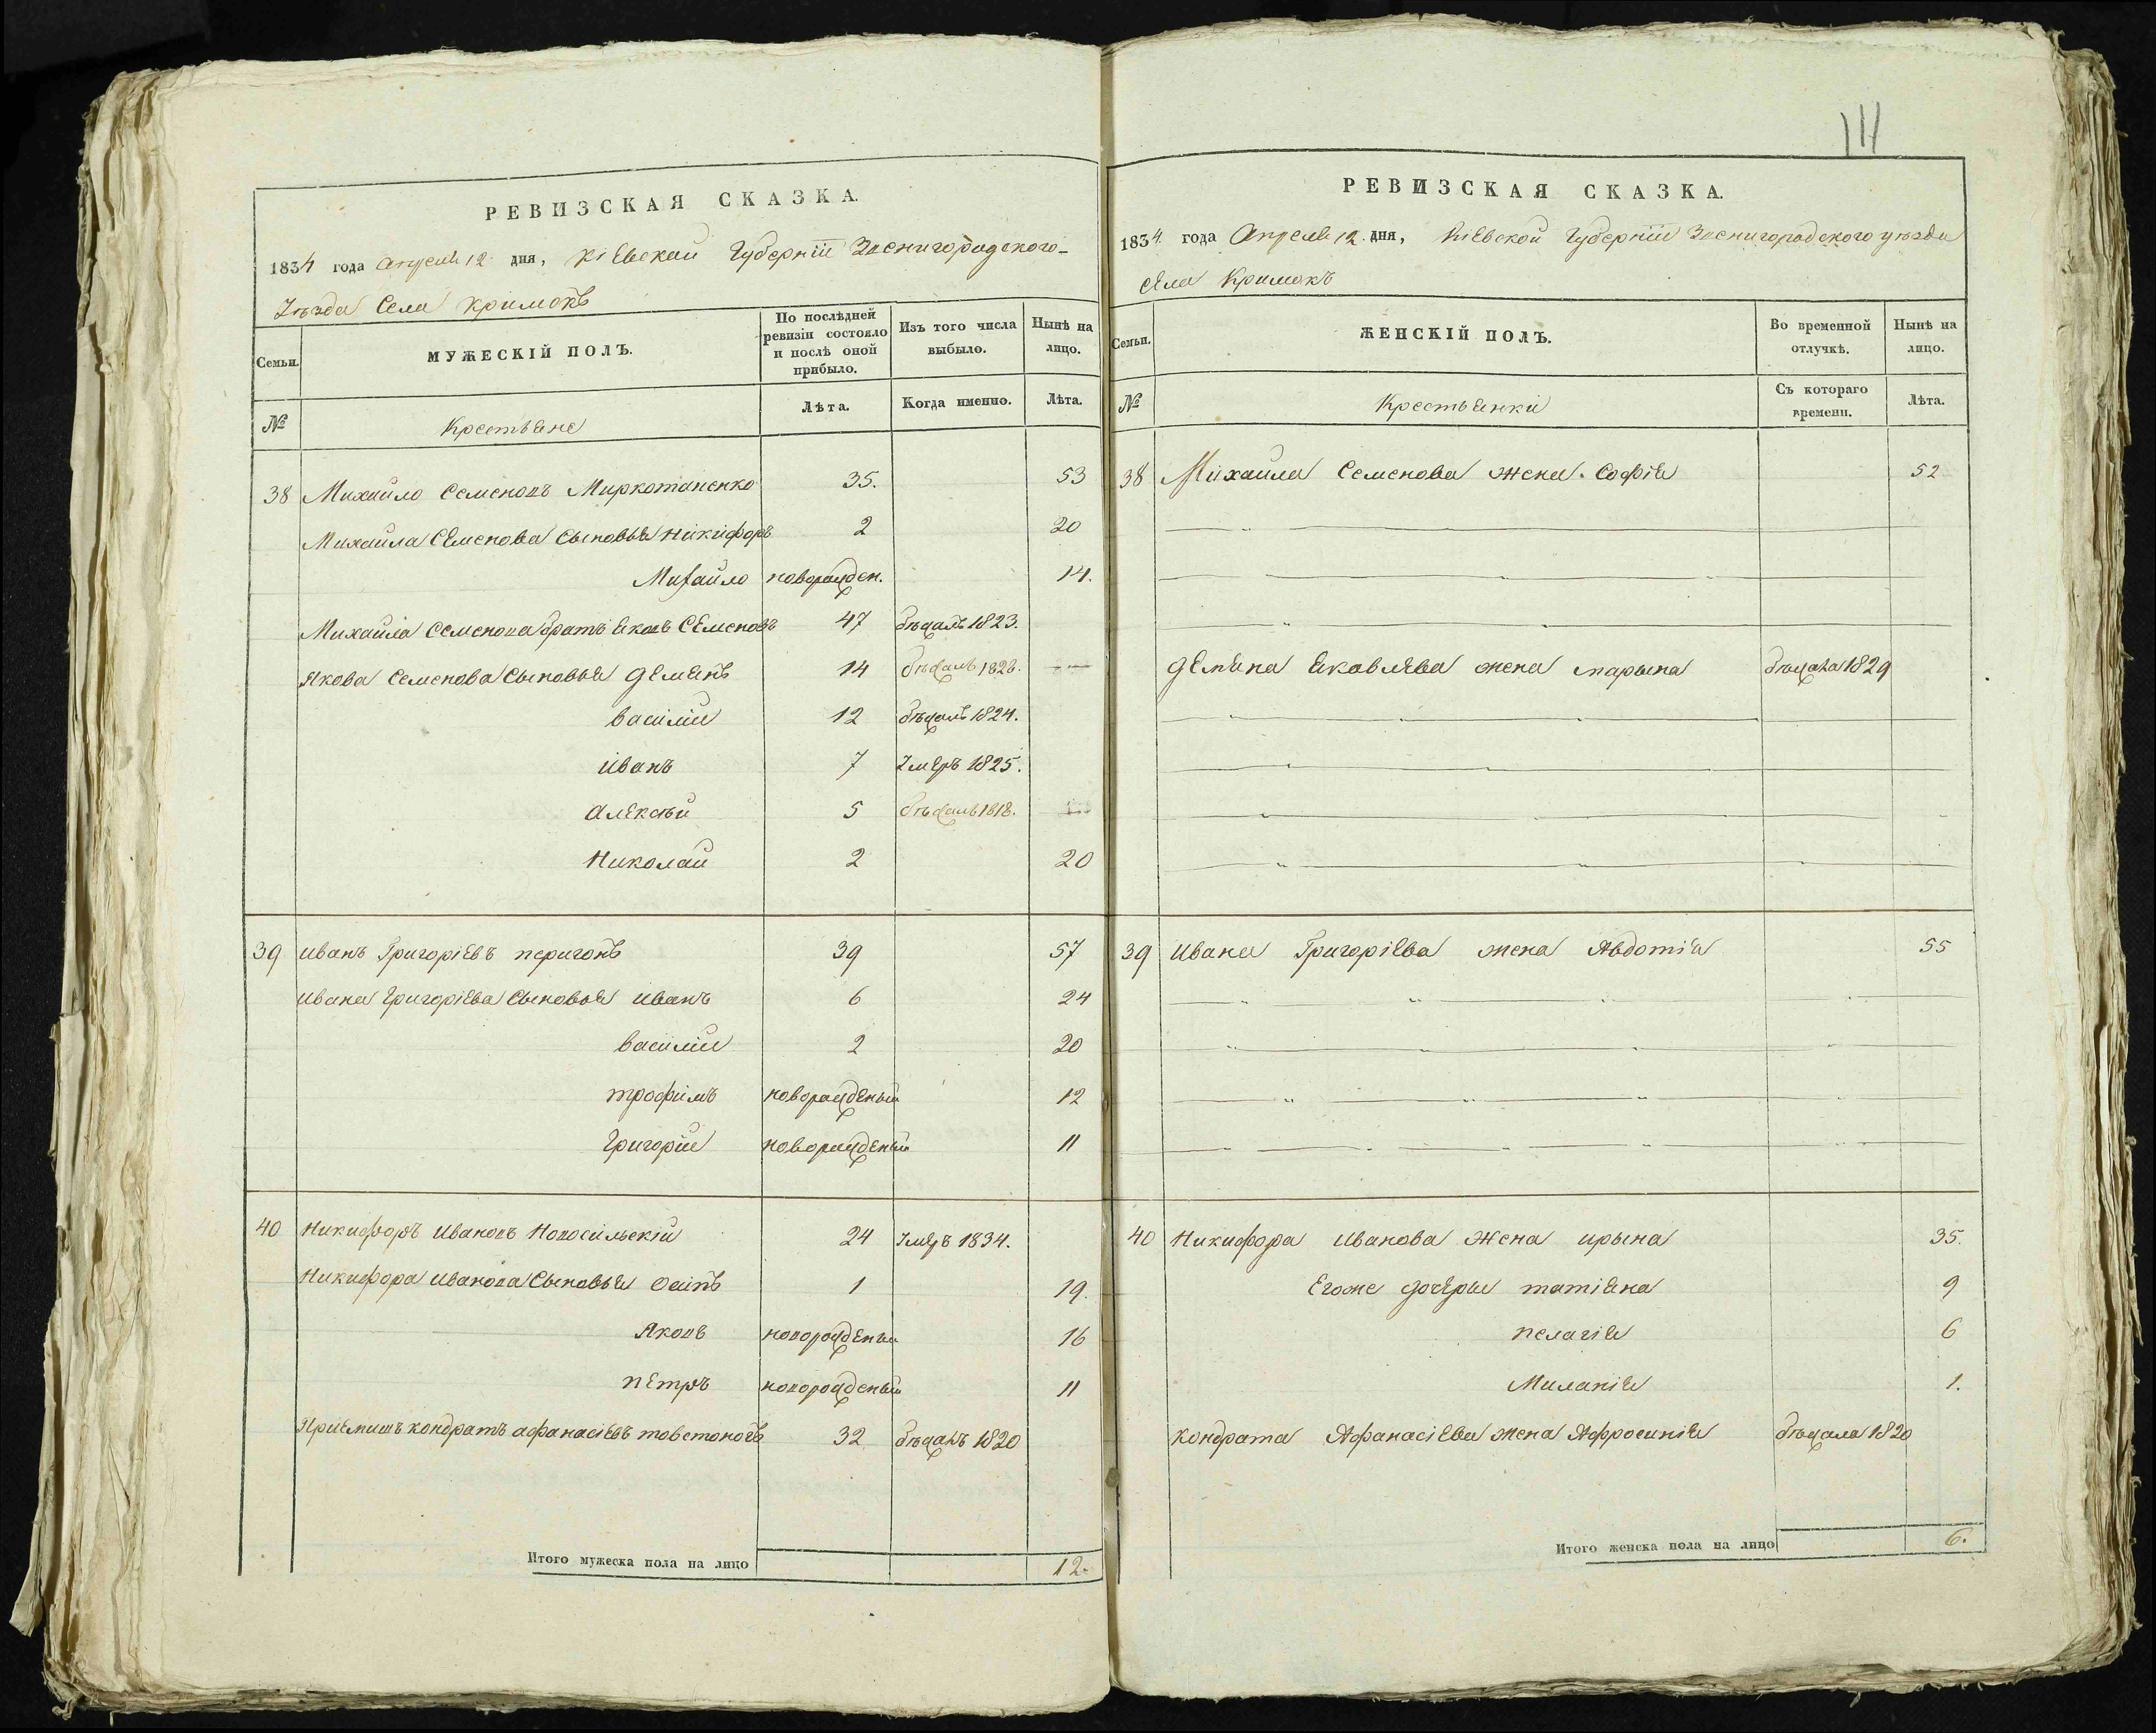 РЕВИЗСКАЯ СКАЗКА.
1834 года Апреля 12 дня, Кіевской Губерніи Звенигородского
Уезда Села Кримокъ
Семьи.
МУЖЕСКІЙ ПОЛЪ.
По послѣдней ревизіи состояло и послѣ оной прибыло.
Изъ того числа выбыло.
Нынѣ на лицо.
№
Крестьяне
Лѣта.
Когда именно.
Лѣта.
38 Михайло Семеновъ 35. 53
Михайла Семенова Сыновья Никифоръ 2 20
Михайло новорожден. 14.
Михайла Семенова братъ Яковъ Семеновъ 47 бѣжалъ 1823.
Якова Семенова Сыновья Демянъ 14 бѣжалъ 1828.
василий 12 бѣжалъ 1824.
иванъ 7 Умеръ 1825.
Алексѣй 5 бѣжалъ 1818.
Николай 2 20
39 иванъ Григоріевъ перигонъ 39 57
ивана Григоріева Сыновья иванъ 6 24
василий 2 20
трофимъ новорожденый 12
Григорий новорожденый 11
40 Никифоръ ивановъ Новосильскій 24 Умеръ 1834.
Никифора иванова Сыновья осипъ 1 19.
Яковъ новорожденый 16
петръ новорожденый 11
Приемишъ кондратъ афанасіевъ товстоногъ 32 бѣжалъ 1820
Итого мужеска пола на лицо 12.
111
РЕВИЗСКАЯ СКАЗКА.
1834. года Апреля 12. дня, Кіевской Губерніи Звенигородского уезда
села Кримокъ
Семьи.
ЖЕНСКІЙ ПОЛЪ.
Во временной отлучкѣ.
Нынѣ на лицо.
№
Крестьянки
Съ котораго времени.
Лѣта.
38 Михайла Семенова жена Софія 52
Демяна Яковлева жена марына бѣжала 1829
39 ивана Григоріева жена Авдотія 55
40 Никифора иванова жена ирына 35.
Егоже дочери татіяна 9
пелагія 6
Миланія 1.
кондрата Афанасіева жена Афросинія бѣжала 1820
Итого женска пола на лицо 6.